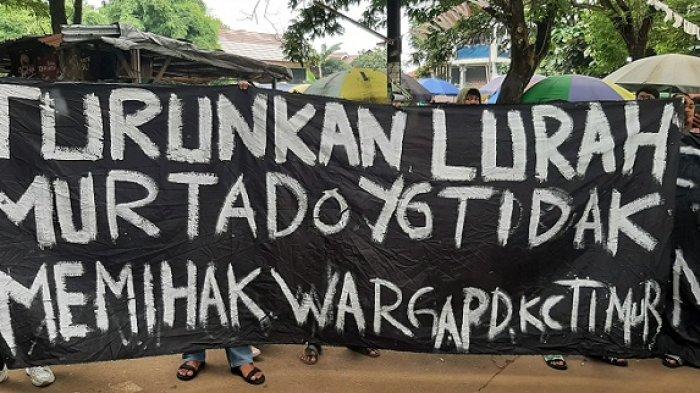 TURUNKAN LURAH
MURTADO YG TIDAK
MEMIHAK WARGA PD.KC TIMUR